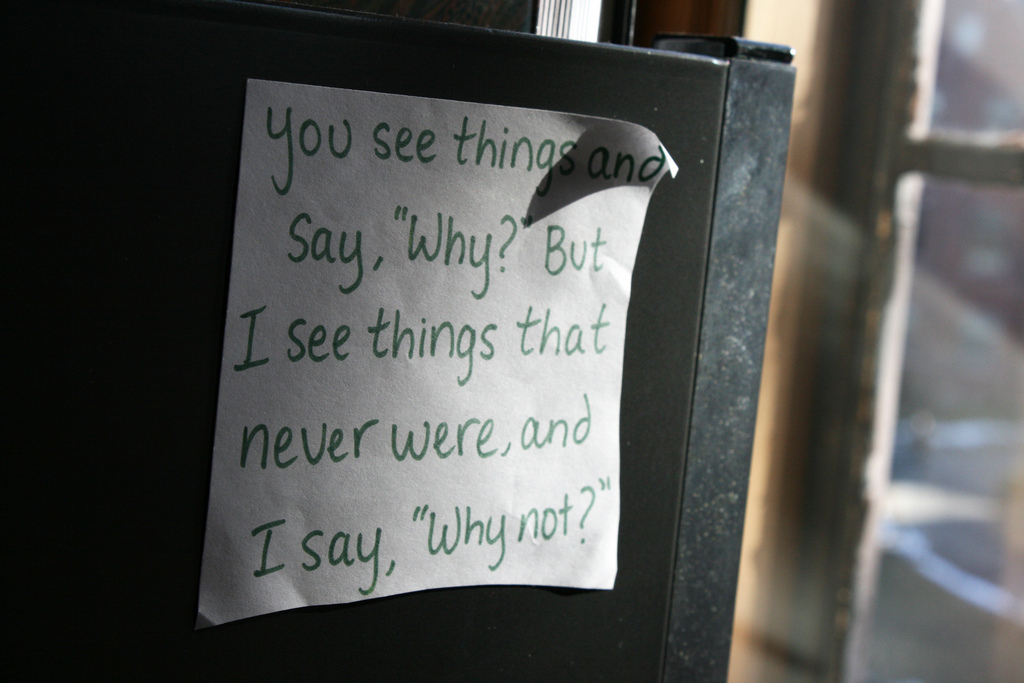 You see things and
Say, "Why?" But
I see things that
never were, and
I say, "Why not?"